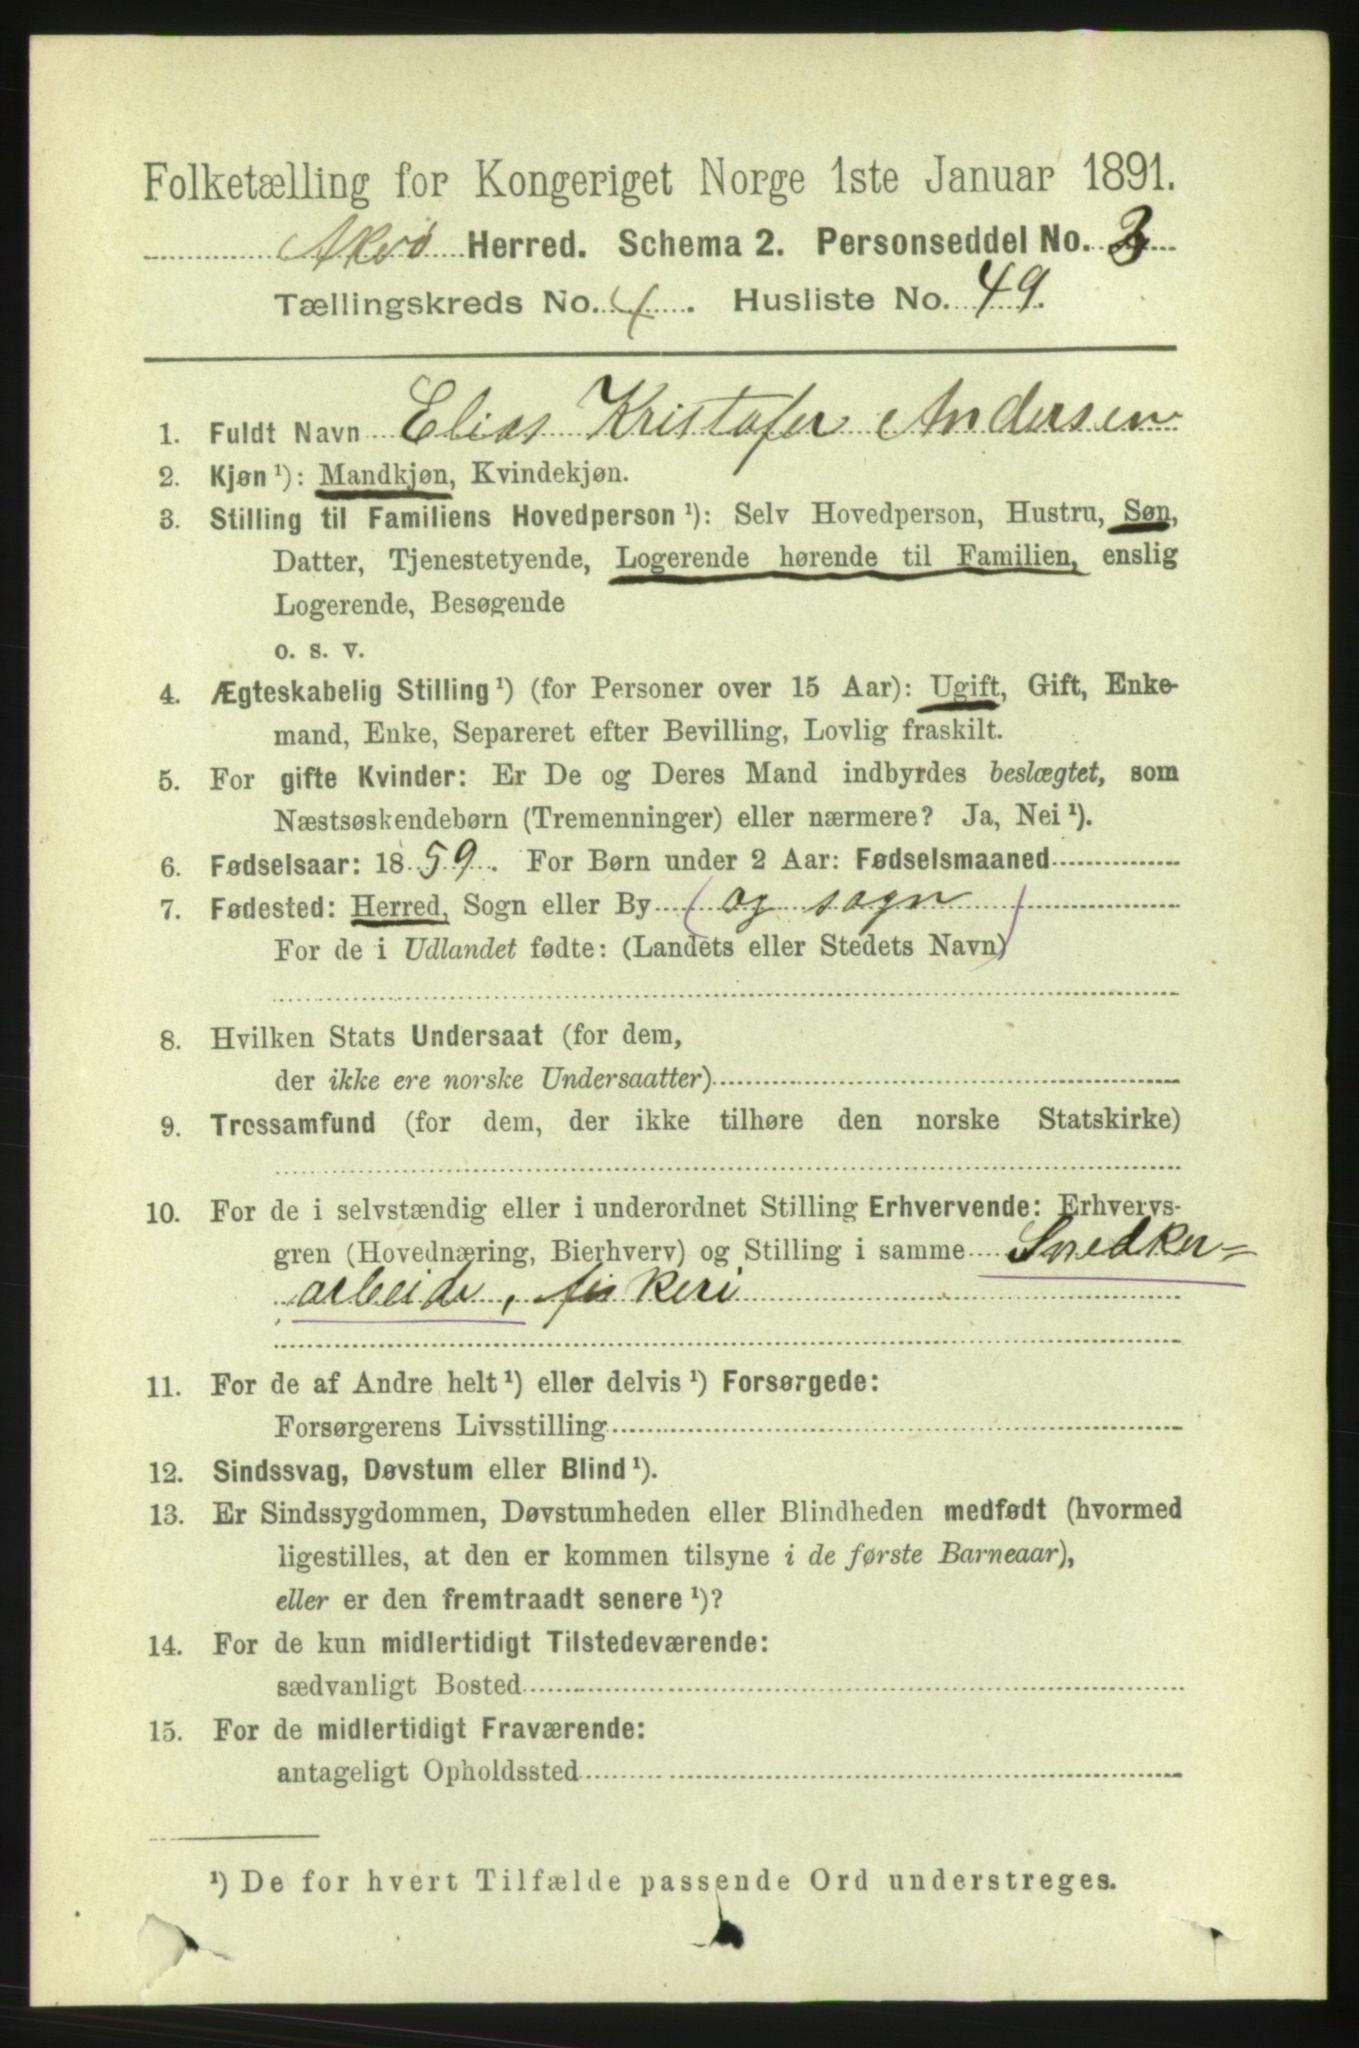 Folketælling for Kongeriget Norge 1ste Januar 1891.
Akerø Herred. Schema 2. Personseddel No. 3
Tællingskreds No. 4. Husliste No. 49.
1. Fuldt Navn Elias Kristofer Andersen
2. Kjøn ¹): Mandkjøn, Kvindekjøn.
3. Stilling til Familiens Hovedperson ¹): Selv Hovedperson, Hustru, Søn,
Datter, Tjenestetyende, Logerende hørende til Familien, enslig
Logerende, Besøgende
o. s. v.
4. Ægteskabelig Stilling ¹) (for Personer over 15 Aar): Ugift, Gift, Enke-
mand, Enke, Separeret efter Bevilling, Lovlig fraskilt.
5. For gifte Kvinder: Er De og Deres Mand indbyrdes beslægtet, som
Næstsøskendebørn (Tremenninger) eller nærmere? Ja, Nei ¹).
6. Fødselsaar: 1859. For Børn under 2 Aar: Fødselsmaaned
7. Fødested: Herred, Sogn eller By (og sogn)
For de i Udlandet fødte: (Landets eller Stedets Navn)
8. Hvilken Stats Undersaat (for dem,
der ikke ere norske Undersaatter)
9. Trossamfund (for dem, der ikke tilhøre den norske Statskirke)
10. For de i selvstændig eller i underordnet Stilling Erhvervende: Erhvervs-
gren (Hovednæring, Bierhverv) og Stilling i samme Snedker=
arbeide, fiskeri
11. For de af Andre helt ¹) eller delvis ¹) Forsørgede:
Forsørgerens Livsstilling
12. Sindssvag, Døvstum eller Blind ¹).
13. Er Sindssygdommen, Døvstumheden eller Blindheden medfødt (hvormed
ligestilles, at den er kommen tilsyne i de første Barneaar),
eller er den fremtraadt senere ¹)?
14. For de kun midlertidigt Tilstedeværende:
sædvanligt Bosted
15. For de midlertidigt Fraværende:
antageligt Opholdssted
¹) De for hvert Tilfælde passende Ord understreges.